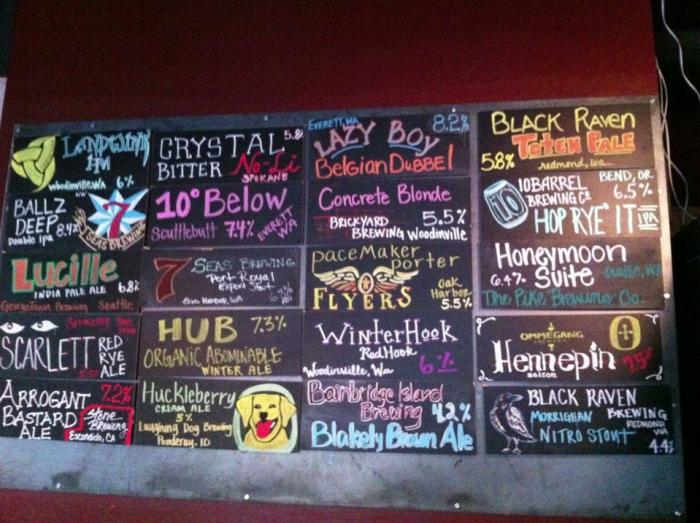 IPA
Woodinville, WA 6%
BALLZ
DEEP
Double ipa 8.4%
7
SEAS BREWING
Lucille
INDIA PALE ALE 6.8%
GeorgeTown Brewing Seattle
SCARLETT RED
RYE
ALE
ARROGANT 7.2%
BASTARD
ALE
Stone
Brewing
Escondido, CA
CRYSTAL 5.8%
BITTER No-Li
SPOKANE
10° Below
Scuttlebutt 7.4% EVERETT
WA
7 SEAS BREWING
Port Royal
Export Stout
Gig Harbor, WA
HUB 7.3%
ORGANIC ABOMINABLE
WINTER ALE
Huckleberry
CREAM ALE
5%
Laughing Dog Brewing
Ponderay, ID
EVERETT, WA 8.2%
LAZY BOY
Belgian Dubbel
Concrete Blonde
5.5%
BRICKYARD
BREWING Woodinville
Pacemaker
porter
FLYERS
Oak
Harbor
5.5%
WinterHook
RedHook
Woodinville, Wa 6%
Bainbridge Island
Brewing 4.2%
Blakely Brown Ale
BLACK RAVEN
TOTEM PALE
5.8% redmond, wa
10 BARREL BEND, OR.
BREWING CO. 6.5%
10
HOP RYE' IT IPA
Honeymoon
6.4% Suite Seattle, WA
The Pike Brewing Co.
OMMEGANG
Hennepin
saison
BLACK RAVEN
MORRIGHAN BREWING
REDMOND
WA
NITRO STOUT
4.4%